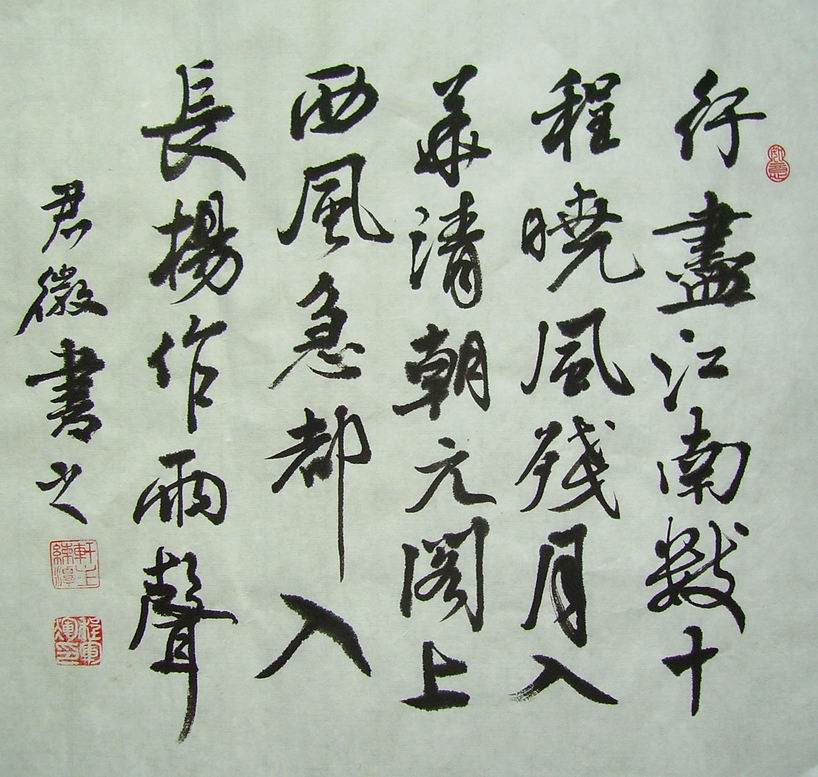 行盡江南數十
程曉風殘月入
華清朝元閣上
西風急都入
長楊作雨聲
君徽書之